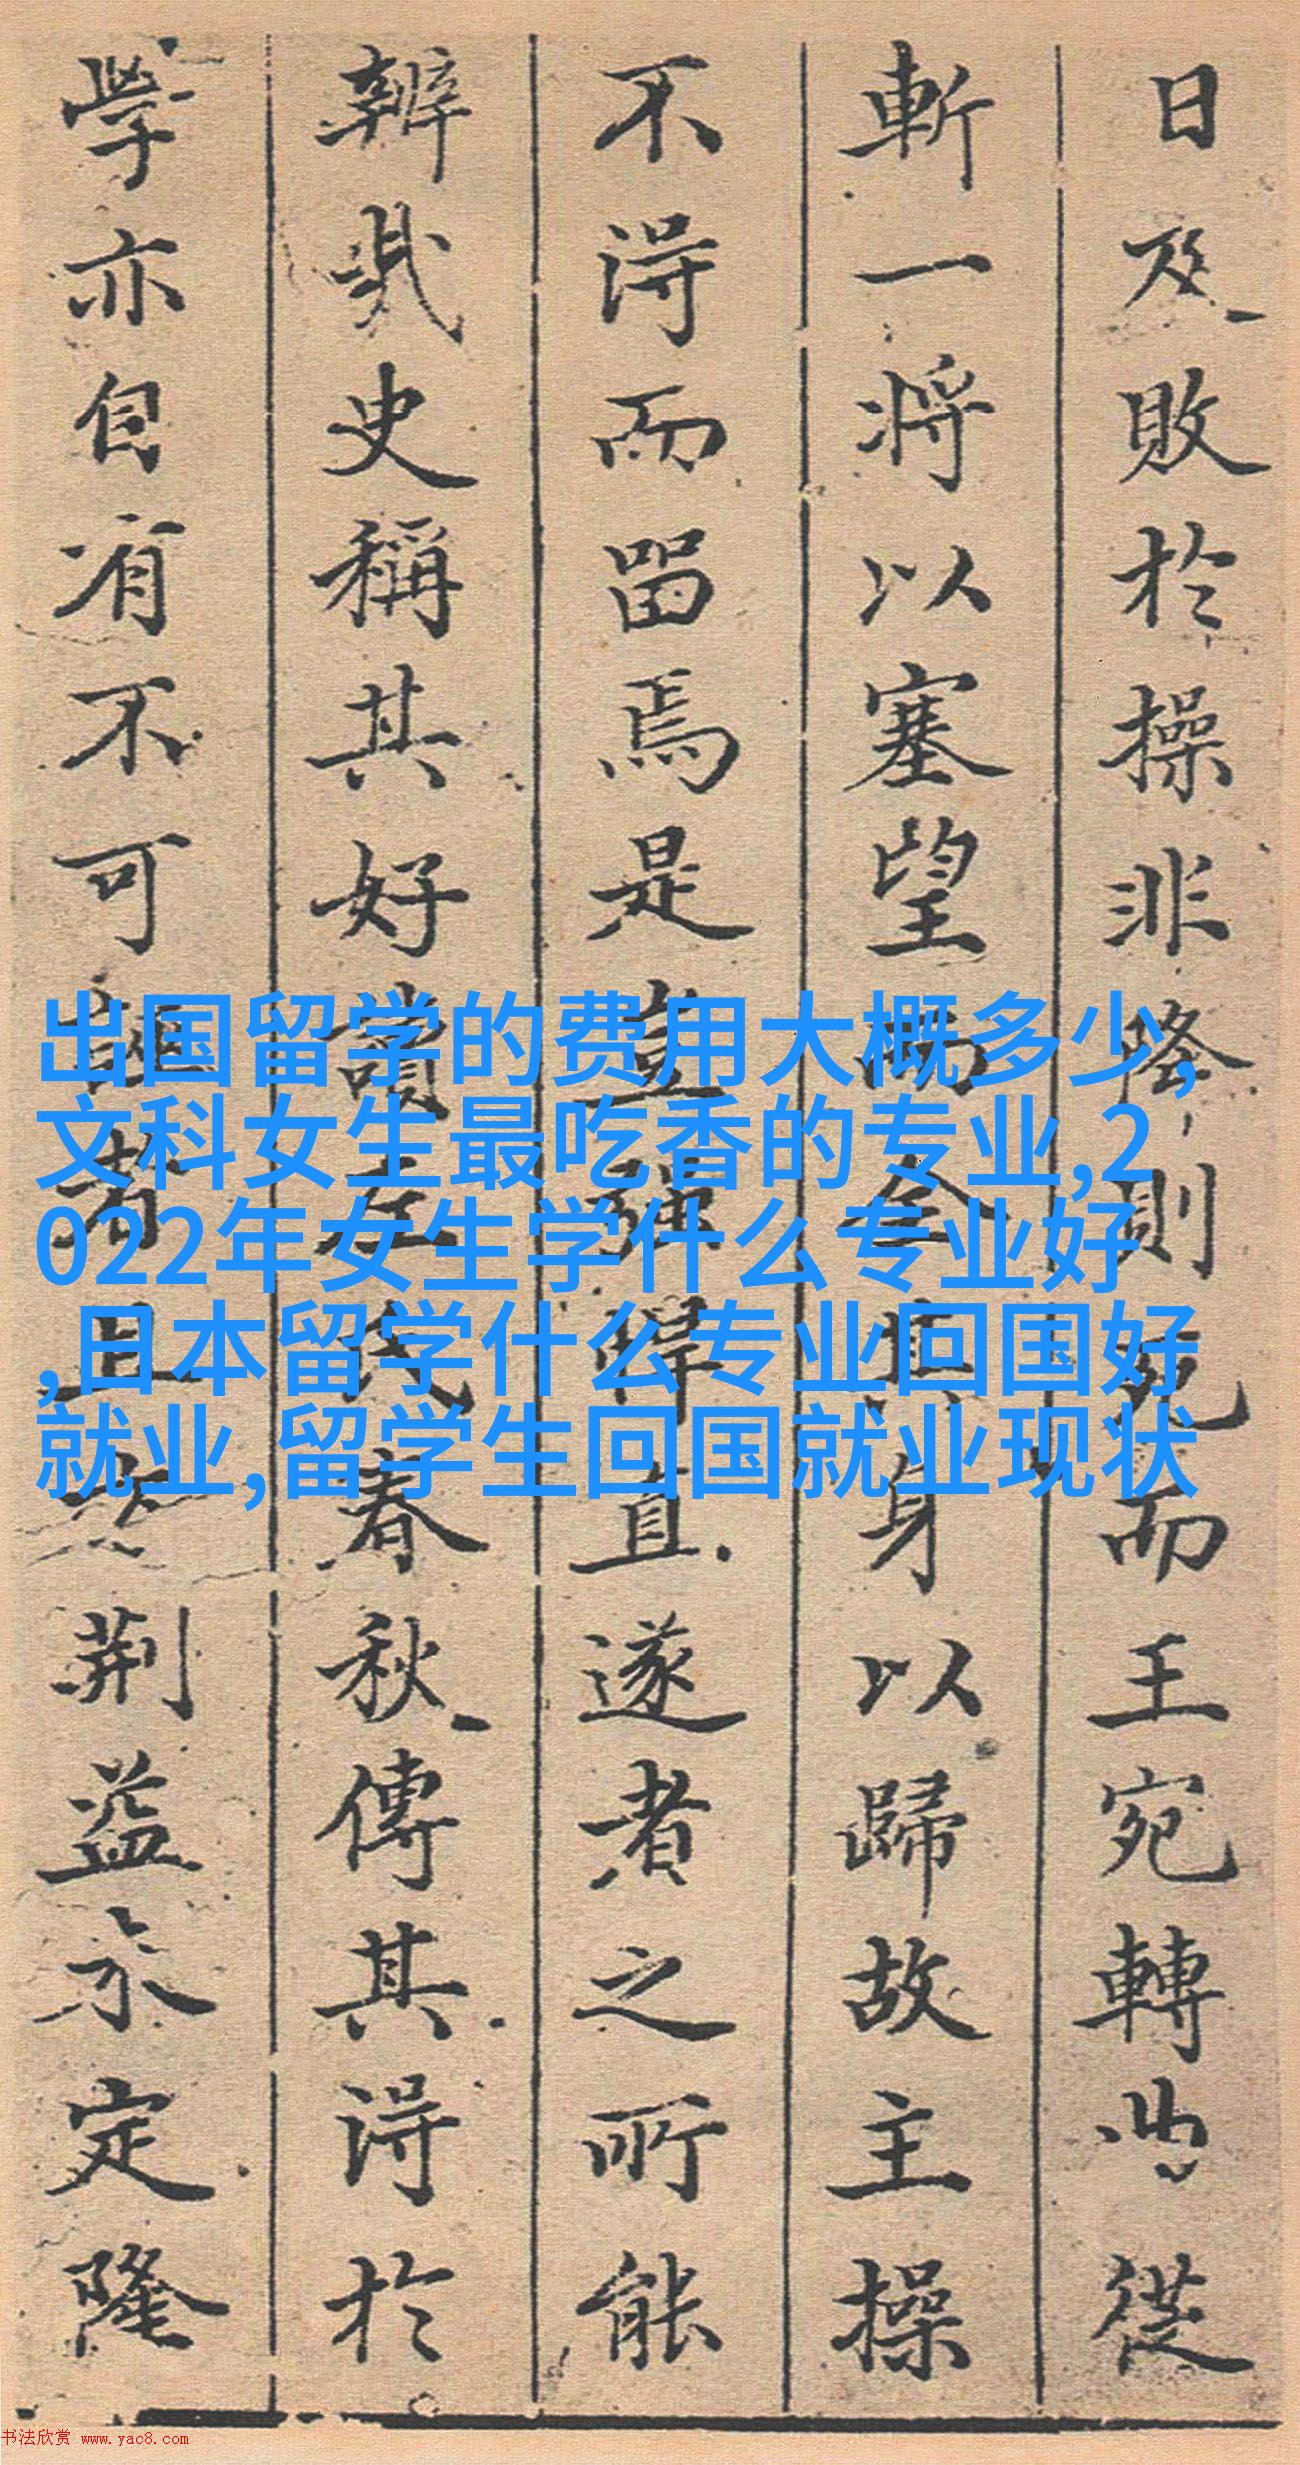 日及敗於操非降則死而王宛轉曲從
斬一將以塞望而全其身以歸故主操
不得而留焉是豈強悍直遂者之所能
辨哉史稱其好讀左氏春秋傳其得於
學亦自有不可誣者且夫荊益未定隆
出国留学的费用大概多少,
文科女生最吃香的专业,2
022年女生学什么专业好
,日本留学什么专业回国好
就业,留学生回国就业现状
书法欣赏 www.yac8.com